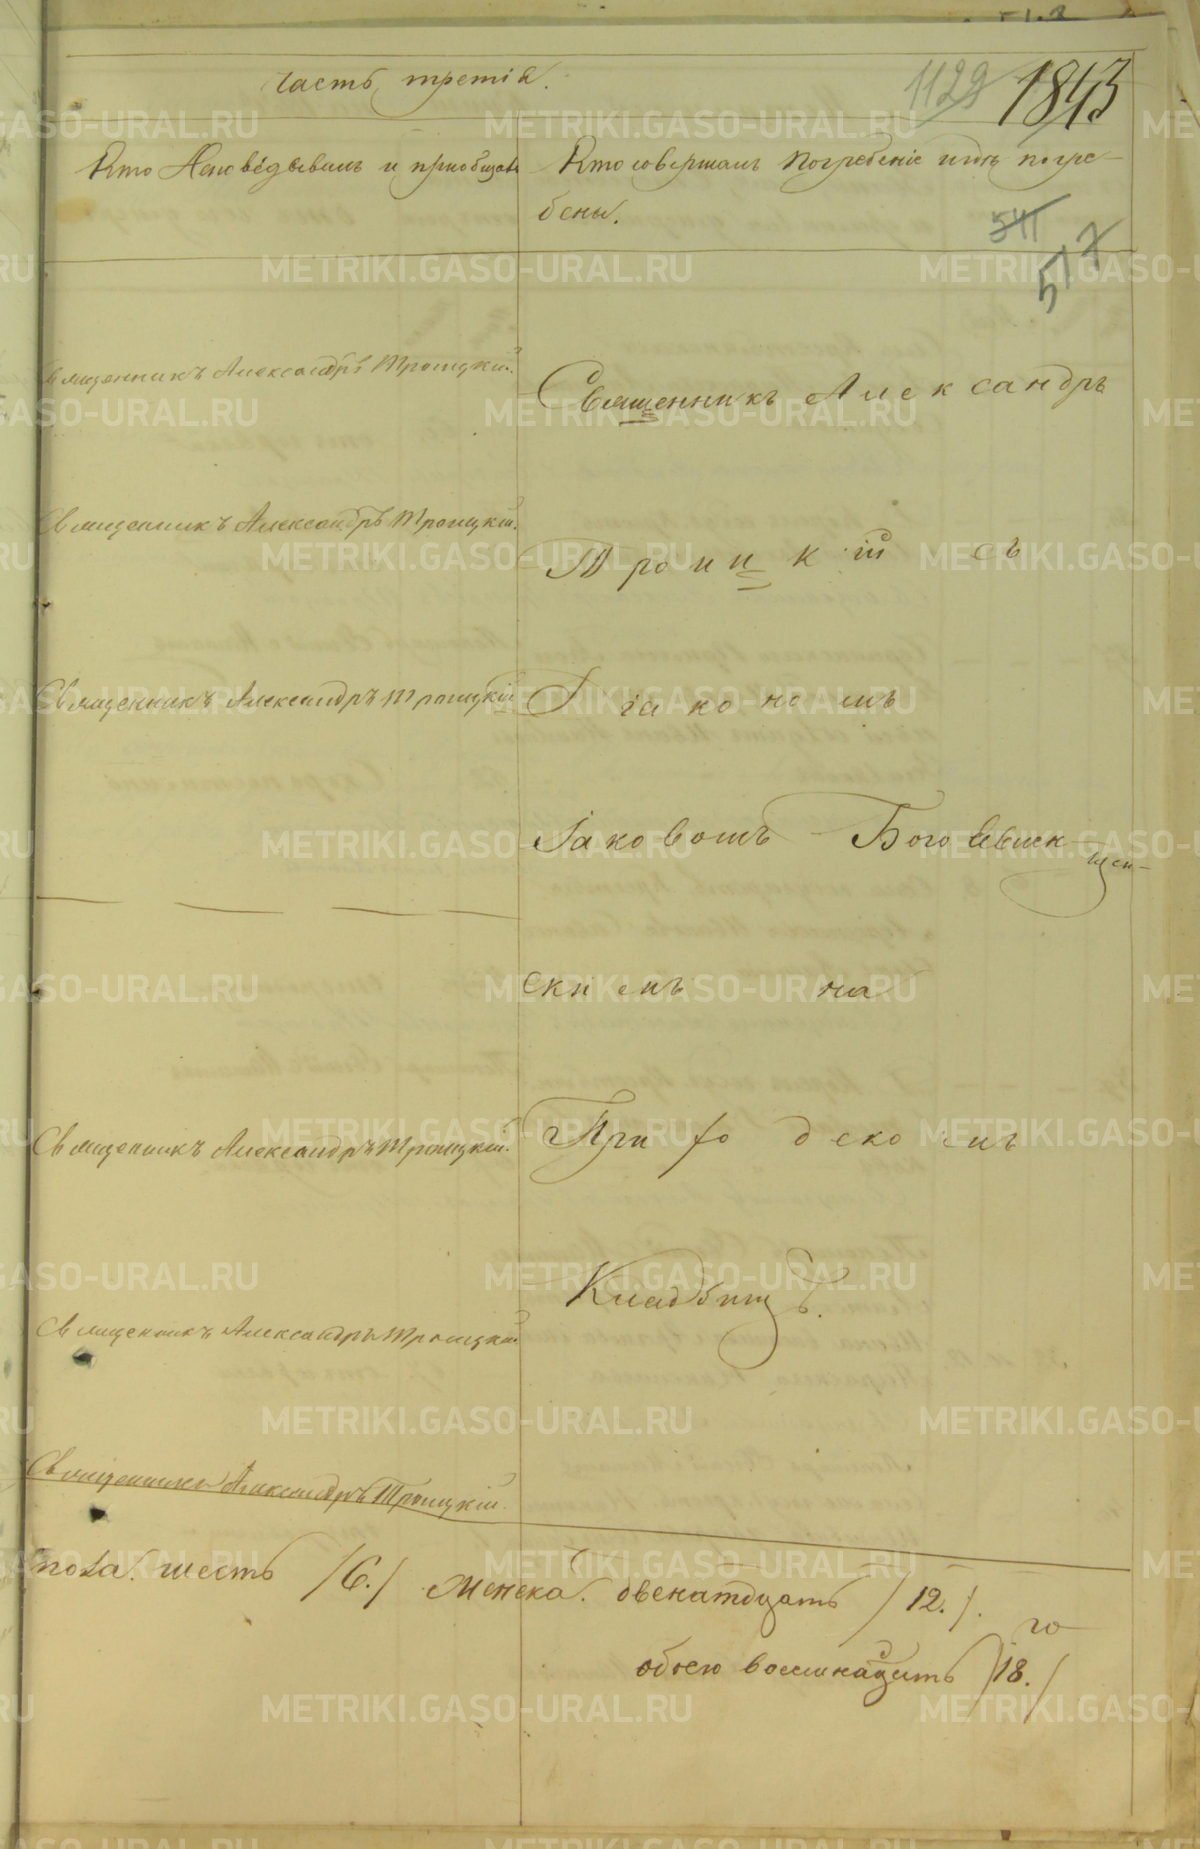 часть третія.
1129 1843
Кто Исповѣдывалъ и приобщалъ
Кто совершалъ Погребеніе и гдѣ погре-
бены.
541
517
Священникъ Александръ Троицкій.
Священникъ Александръ
Священникъ Александръ Троицкій.
Троицкій съ
Священникъ Александръ Троицкій
Діакономъ
Іаковомъ Богоявлен-
скимъ на
Священникъ Александръ Троицкій.
Приходскомъ
Кладбищѣ.
Священникъ Александръ Троицкій.
Священникъ Александръ Троицкій.
пола. шесть /6./ женска. двенатдцать /12./.
обоего восемнадцать /18./